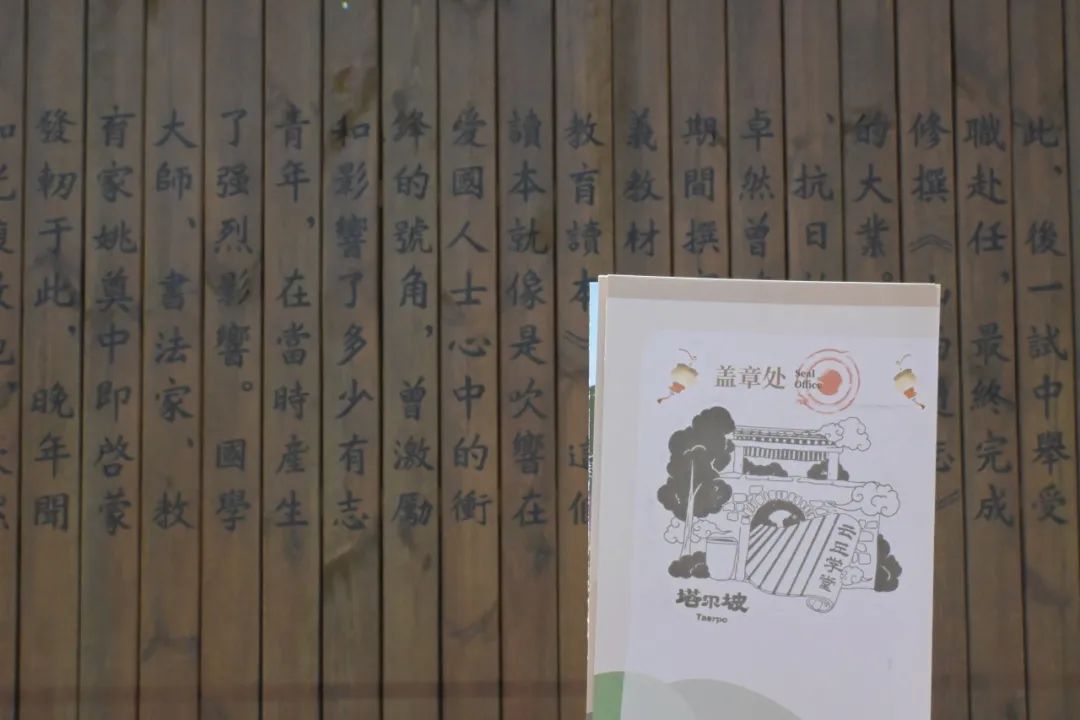 此、後一試中舉受
職赴任，最終完成
修撰《
的大業。
、抗日
卓然曾
期間撰
義教材
教育讀本》
讀本就像是吹響在
愛國人士心中的衝
鋒的號角，曾激勵
和影響了多少有志
青年，在當時産生
了强烈影響。國學
大師、書法家、教
育家姚奠中即啓蒙
發軔于此，晚年聞
盖章处
Seal
Office
云丘学堂
塔尔坡
Taerpo